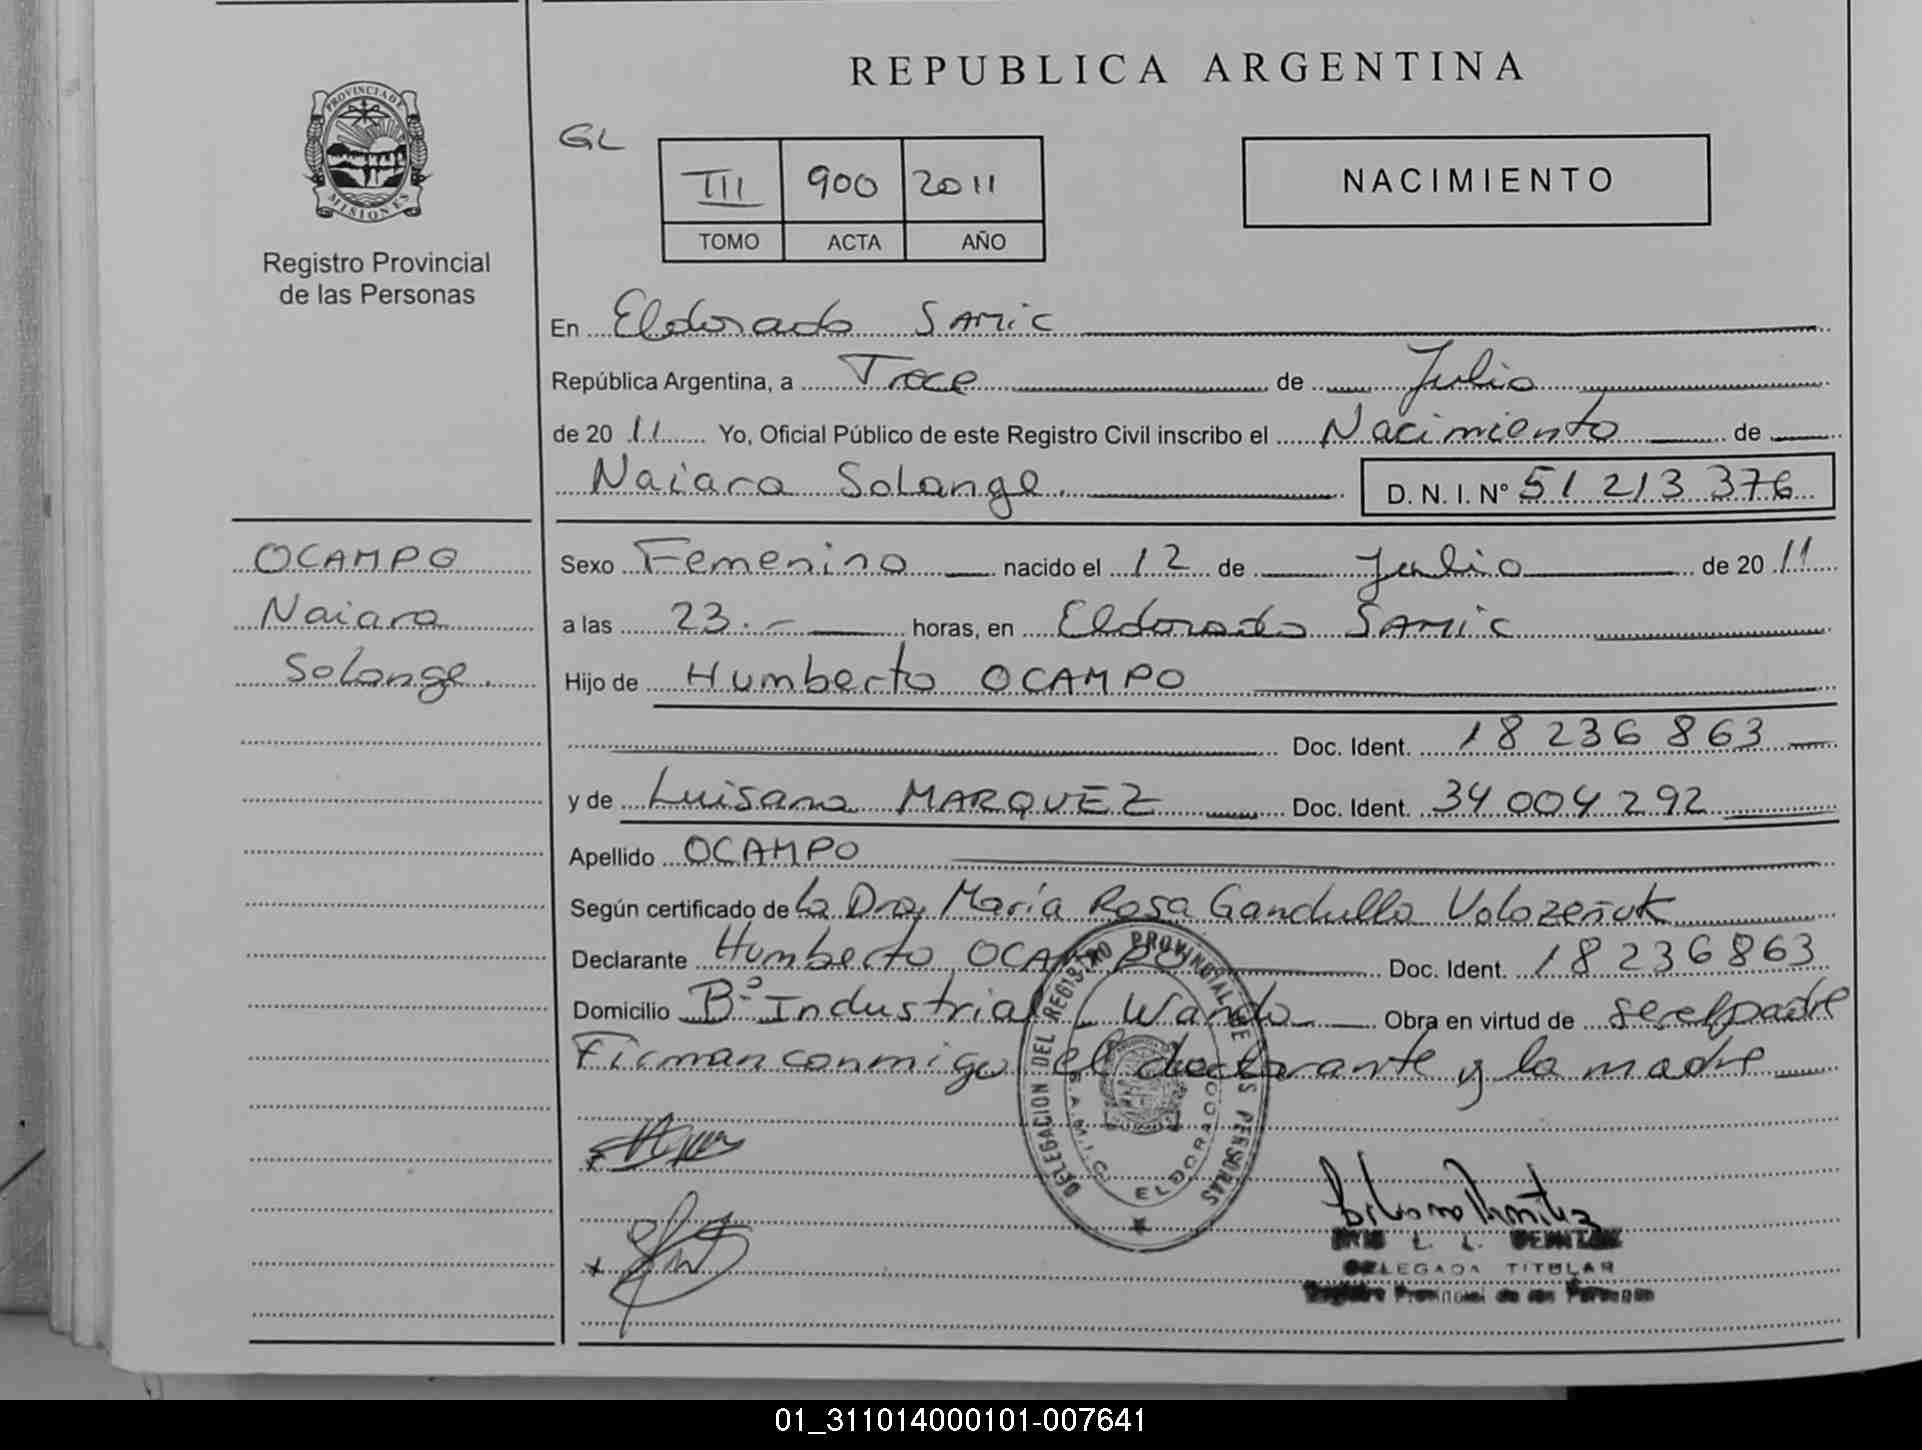 REPUBLICA ARGENTINA
PROVINCIA DE
MISIONES
Registro Provincial
de las Personas
GL
III 900 2011
TOMO ACTA AÑO
NACIMIENTO
En Eldorado SAMIC
República Argentina, a Trece de Julio
de 20 11 Yo, Oficial Público de este Registro Civil inscribo el Nacimiento de
Naiara Solange. D. N. I. Nº 51 213 376
OCAMPO
Naiara
Solange.
Sexo Femenino nacido el 12 de Julio de 20 11
a las 23.- horas, en Eldorado SAMIC
Hijo de Humberto OCAMPO
Doc. Ident. 18 236 863
y de Luisana MARQUEZ Doc. Ident. 34 004 292
Apellido OCAMPO
Según certificado de la Dra. María Rosa Gandulla
Declarante Humberto OCAMPO Doc. Ident. 18 236 863
Domicilio Bº Industrial Wanda Obra en virtud de ser el padre
Firman conmigo el declarante y la madre
DELEGACION DEL REGISTRO PROVINCIAL DE LAS PERSONAS
S.A.M.I.C. ELDORADO
DELEGADA TITULAR
Registro Provincial de las Personas
01_311014000101-007641